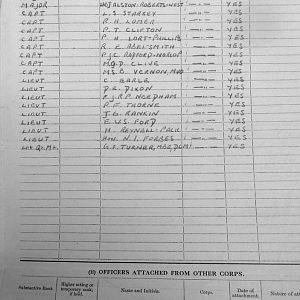 MAJOR W.J. ALSTON-ROBERTS-WEST YES
CAPT L.S. STARKEY YES
CAPT R.H. LOMER YES
CAPT P.T. CLIFTON YES
CAPT P.H. LORT-PHILLIPS YES
CAPT R.E. ABEL SMITH YES
CAPT YES
CAPT CLIVE YES
CAPT B. VERNON YES
LIEUT C. EARLE YES
LIEUT D.R. DIXON YES
LIEUT NEEDHAM YES
LIEUT P.F. THORNE YES
LIEUT J.G. RANKIN YES
LIEUT E.W.S. FORD YES
LIEUT H. REYNELL-PACK YES
LIEUT HON. N.I. FORBES YES
Lt. Qr. Mr. G.F. TURNER YES
(ii) OFFICERS ATTACHED FROM OTHER CORPS.
Substantive Rank. Higher acting or temporary rank, if held. Name and Initials. Corps. Date of attachment. Nature of